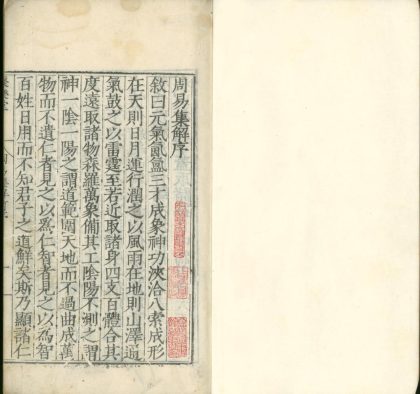 周易集解序
敘曰元氣氤氳三才成象神功浹洽八索成形
在天則日月運行潤之以風雨在地則山澤通
氣鼓之以雷霆至若近取諸身四支百體合其
度遠取諸物森羅萬象備其工陰陽不測之謂
神一陰一陽之謂道範圍天地而不過曲成萬
物而不遺仁者見之以為仁智者見之以為智
百姓日用而不知君子之道鮮矣斯乃顯諸仁